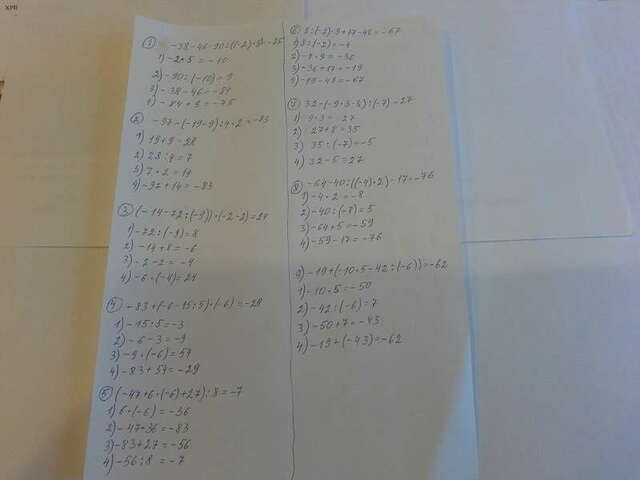 XMI
1) -38-46-90:((-2)·5)=-75
1) -2·5=-10
2) -90:(-10)=9
3) -38-46=-84
4) -84+9=-75
2) -97-(-19-9):4·2=-83
1) 19+9=28
2) 28:4=7
3) 7·2=14
4) -97+14=-83
3) (-14-72:(-9))·(-2-2)=24
1) -72:(-9)=8
2) -14+8=-6
3) -2-2=-4
4) -6·(-4)=24
4) -83+(-6-15:5)·(-6)=-29
1) -15:5=-3
2) -6-3=-9
3) -9·(-6)=54
4) -83+54=-29
5) (-47+6·(-6)+27):8=-7
1) 6·(-6)=-36
2) -47-36=-83
3) -83+27=-56
4) -56:8=-7
6) 8:(-2)·9+17-48=-67
1) 8:(-2)=-4
2) -4·9=-36
3) -36+17=-19
4) -19-48=-67
7) 32-(-9·3-8):(-7)=27
1) 9·3=27
2) 27+8=35
3) 35:(-7)=-5
4) 32-5=27
8) -64-40:((-4)·2)-17=-76
1) -4·2=-8
2) -40:(-8)=5
3) -64+5=-59
4) -59-17=-76
9) -19+(-10·5-42:(-6))=-62
1) -10·5=-50
2) -42:(-6)=7
3) -50+7=-43
4) -19+(-43)=-62